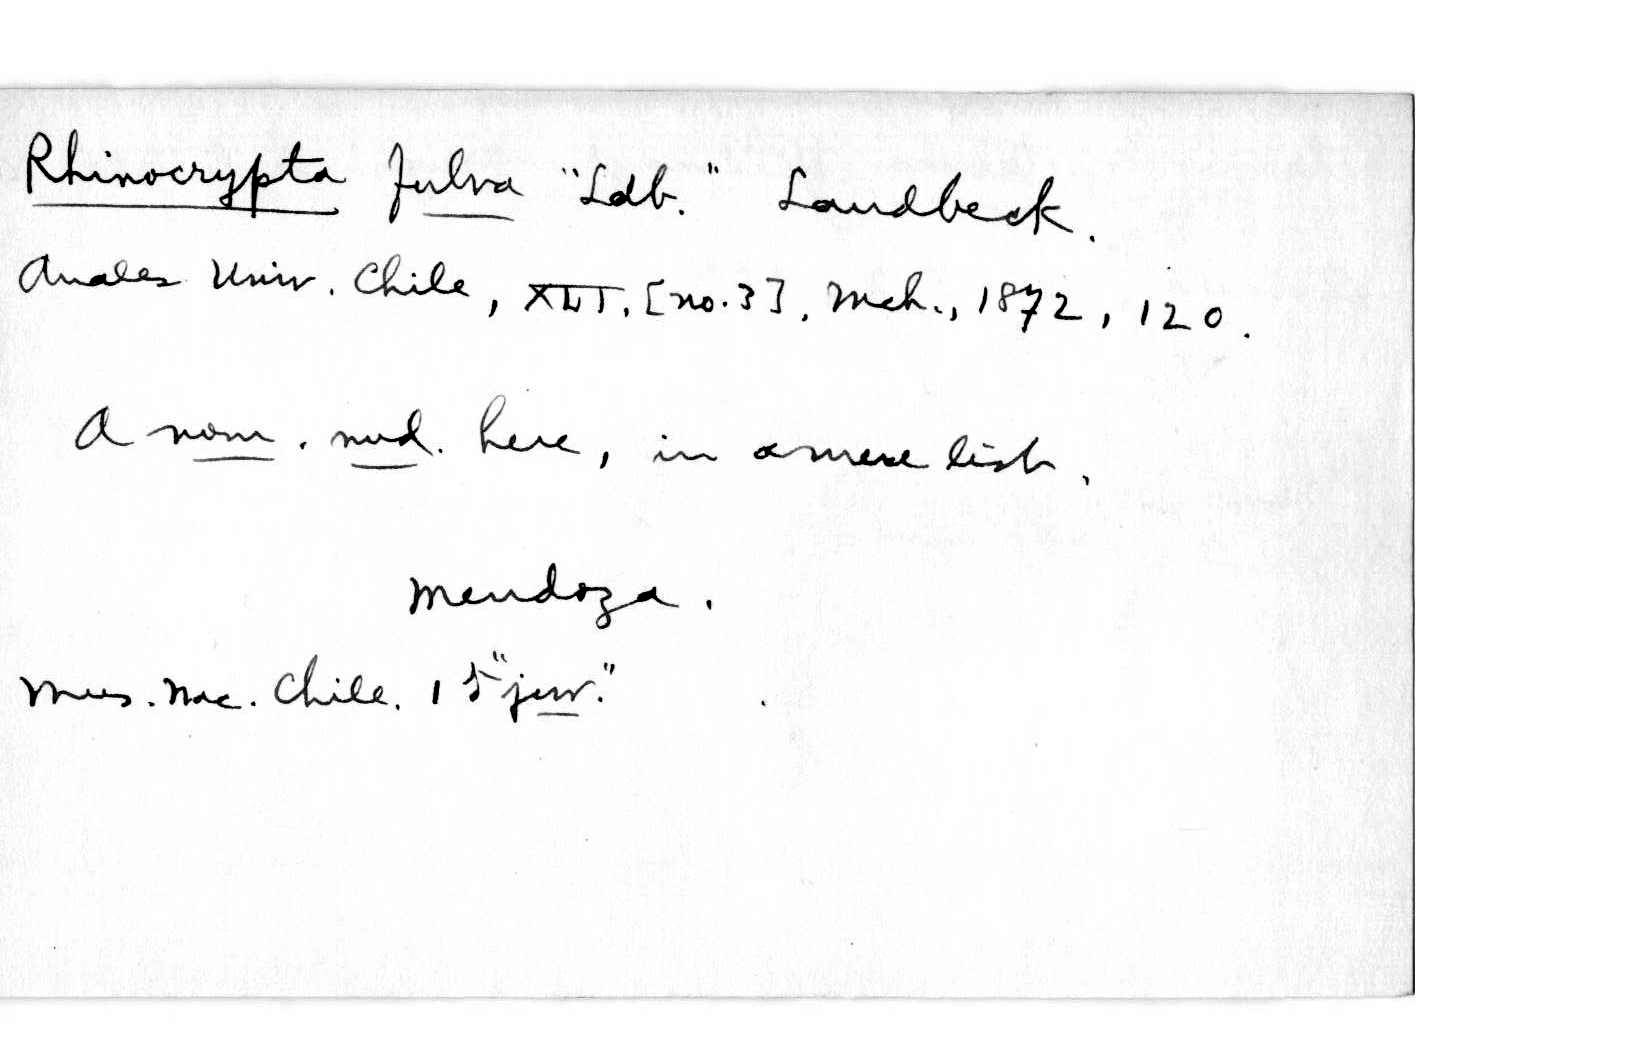 Rhinocrypta fulva "Ldb." Landbeck.
Anales Univ. Chile, XLI, [no. 3], Mch., 1872, 120.
A nom. nud. here, in a mere list.
Mendoza.
Mus. Nac. Chile. 1 "juv."